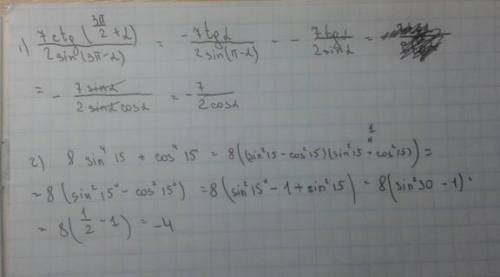 1) 7ctg(3π/2+α) / 2sin(3π-α) = -7tgα / 2sin(π-α) = - 7tgα / 2sinα =
= - 7sinα / 2sinα cosα = - 7 / 2cosα
2) 8 sin⁴15 + cos⁴15 = 8(sin²15 - cos²15)(sin²15 + cos²15) =
= 8(sin²15° - cos²15°) = 8(sin²15° - 1 + sin²15) = 8(sin²30 - 1) =
= 8(1/2 - 1) = -4